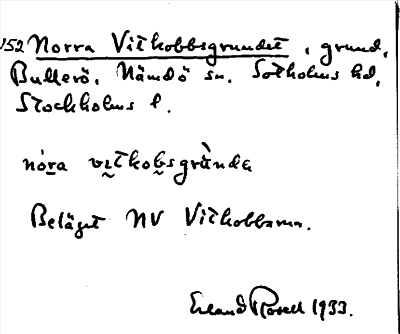 152 Norra Vitkobbsgrundet, grund,
Bullerö, Nämdö sn. Sotholms hd,
Stockholms l.
nóra vı̰tkob̰sgrùndɛ
Beläget NV Vitkobbarna.
Erland Rosell 1933.